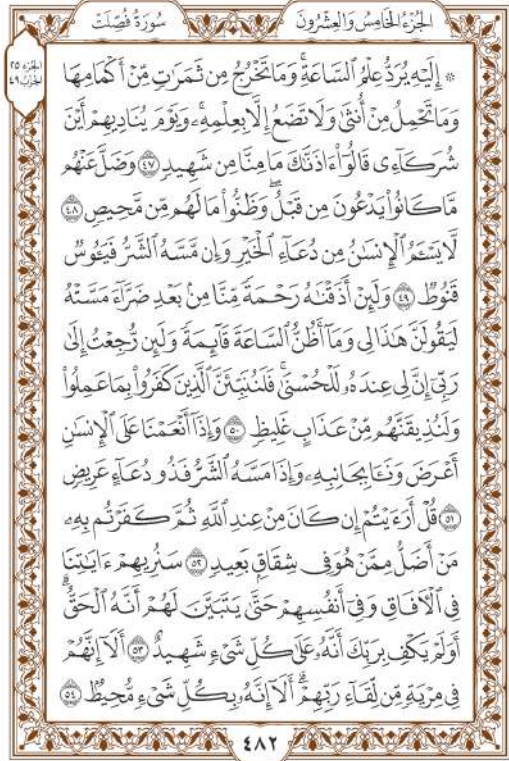 سُورَةُ فُصِّلَتۡ
الجُزۡءُ الخَامِسُ وَالعِشۡرُونَ
الجزء ٢٥
الحزب ٤٩
۞ إِلَيۡهِ يُرَدُّ عِلۡمُ ٱلسَّاعَةِۚ وَمَا تَخۡرُجُ مِن ثَمَرَٰتٖ مِّنۡ أَكۡمَامِهَا
وَمَا تَحۡمِلُ مِنۡ أُنثَىٰ وَلَا تَضَعُ إِلَّا بِعِلۡمِهِۦۚ وَيَوۡمَ يُنَادِيهِمۡ أَيۡنَ
شُرَكَآءِي قَالُوٓاْ ءَاذَنَّٰكَ مَا مِنَّا مِن شَهِيدٖ ٤٧ وَضَلَّ عَنۡهُم
مَّا كَانُواْ يَدۡعُونَ مِن قَبۡلُۖ وَظَنُّواْ مَا لَهُم مِّن مَّحِيصٖ ٤٨
لَّا يَسۡـَٔمُ ٱلۡإِنسَٰنُ مِن دُعَآءِ ٱلۡخَيۡرِ وَإِن مَّسَّهُ ٱلشَّرُّ فَيَـُٔوسٞ
قَنُوطٞ ٤٩ وَلَئِنۡ أَذَقۡنَٰهُ رَحۡمَةٗ مِّنَّا مِنۢ بَعۡدِ ضَرَّآءَ مَسَّتۡهُ
لَيَقُولَنَّ هَٰذَا لِي وَمَآ أَظُنُّ ٱلسَّاعَةَ قَآئِمَةٗ وَلَئِن رُّجِعۡتُ إِلَىٰ
رَبِّيٓ إِنَّ لِي عِندَهُۥ لَلۡحُسۡنَىٰۚ فَلَنُنَبِّئَنَّ ٱلَّذِينَ كَفَرُواْ بِمَا عَمِلُواْ
وَلَنُذِيقَنَّهُم مِّنۡ عَذَابٍ غَلِيظٖ ٥٠ وَإِذَآ أَنۡعَمۡنَا عَلَى ٱلۡإِنسَٰنِ
أَعۡرَضَ وَنَـَٔا بِجَانِبِهِۦ وَإِذَا مَسَّهُ ٱلشَّرُّ فَذُو دُعَآءٍ عَرِيضٖ
٥١ قُلۡ أَرَءَيۡتُمۡ إِن كَانَ مِنۡ عِندِ ٱللَّهِ ثُمَّ كَفَرۡتُم بِهِۦ
مَنۡ أَضَلُّ مِمَّنۡ هُوَ فِي شِقَاقِۭ بَعِيدٖ ٥٢ سَنُرِيهِمۡ ءَايَٰتِنَا
فِي ٱلۡأٓفَاقِ وَفِيٓ أَنفُسِهِمۡ حَتَّىٰ يَتَبَيَّنَ لَهُمۡ أَنَّهُ ٱلۡحَقُّۗ
أَوَلَمۡ يَكۡفِ بِرَبِّكَ أَنَّهُۥ عَلَىٰ كُلِّ شَيۡءٖ شَهِيدٌ ٥٣ أَلَآ إِنَّهُمۡ
فِي مِرۡيَةٖ مِّن لِّقَآءِ رَبِّهِمۡۗ أَلَآ إِنَّهُۥ بِكُلِّ شَيۡءٖ مُّحِيطُۢ ٥٤
٤٨٢